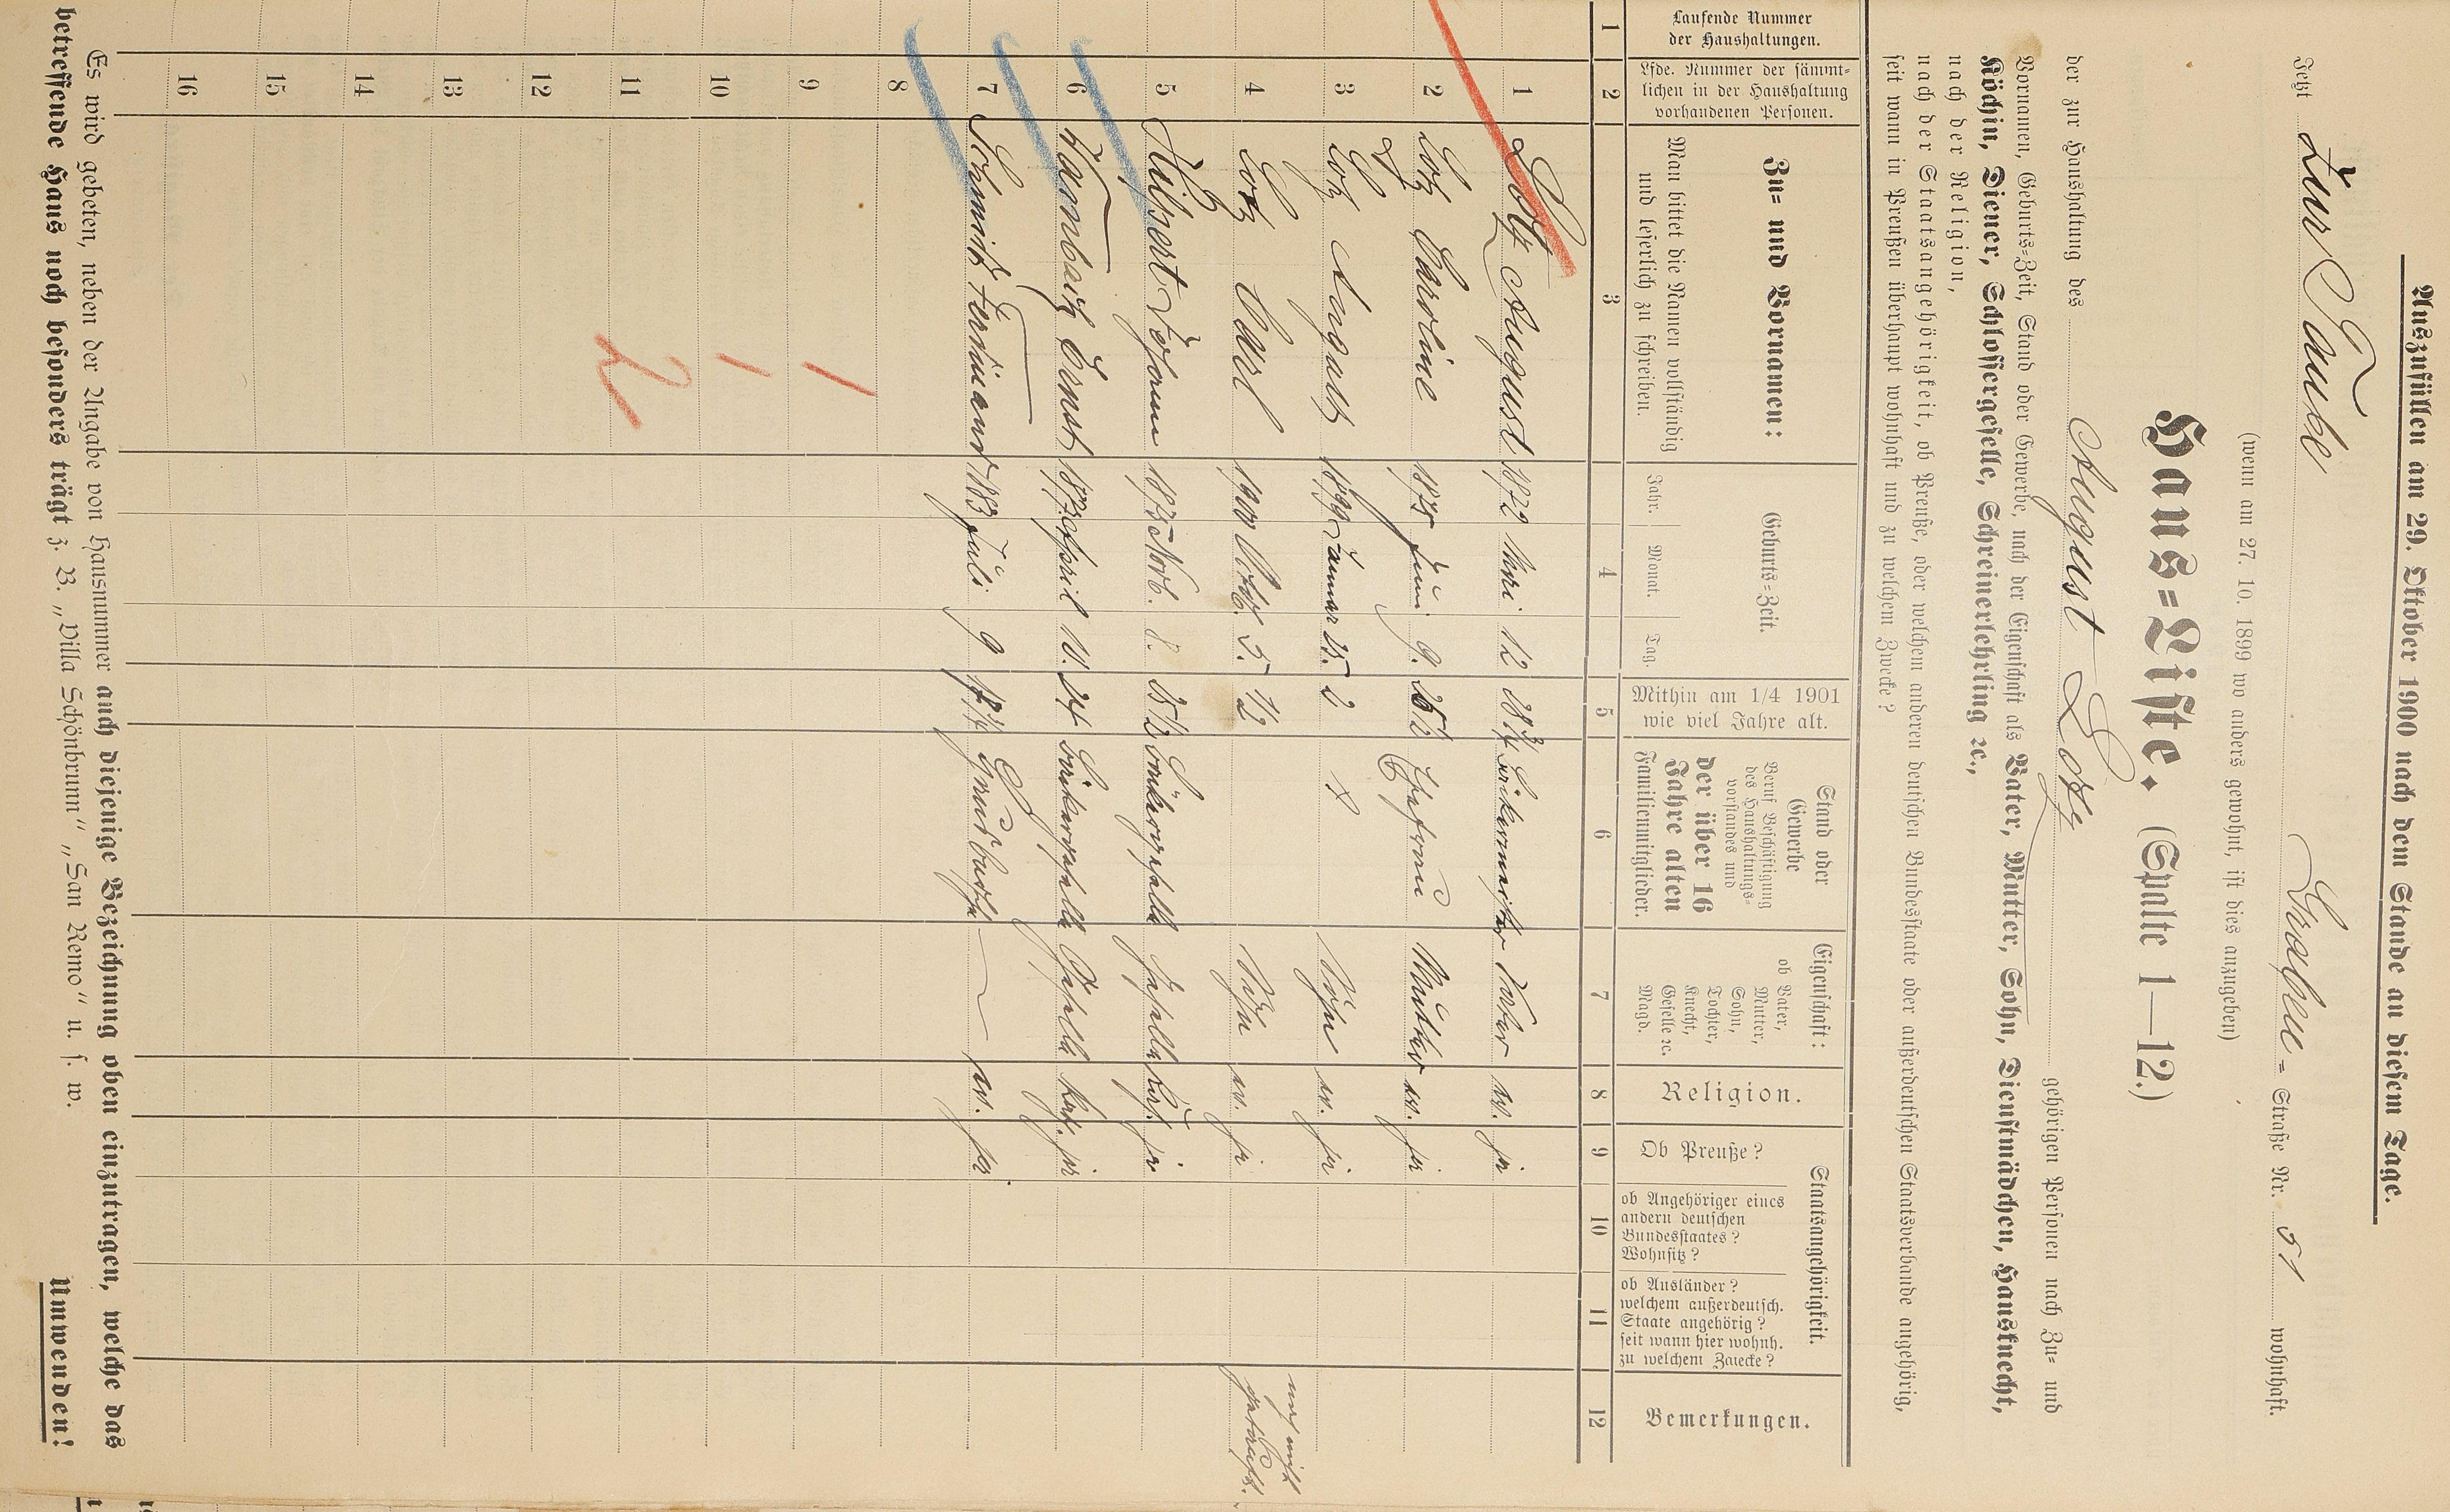 Auszufüllen am 29. Oktober 1900 nach dem Stande an diesem Tage.
Jetzt Zur Taube Graben- Straße Nr. 51 wohnhaft.
(wenn am 27. 10. 1899 wo anders gewohnt, ist dies anzugeben)
Haus-Liste. (Spalte 1—12.)
der zur Haushaltung des August Lotz gehörigen Personen nach Zu- und
Vornamen, Geburts-Zeit, Stand oder Gewerbe, nach der Eigenschaft als Vater, Mutter, Sohn, Dienstmädchen, Hausknecht,
Köchin, Diener, Schlossergeselle, Schreinerlehrling ꝛc.,
nach der Religion,
nach der Staatsangehörigkeit, ob Preuße, oder welchem anderen deutschen Bundesstaate oder außerdeutschen Staatsverbande angehörig,
seit wann in Preußen überhaupt wohnhaft und zu welchem Zwecke?
Laufende Nummer
der Haushaltungen.
Lfde. Nummer der sämmt-
lichen in der Haushaltung
vorhandenen Personen.
Zu- und Vornamen:
Man bittet die Namen vollständig
und leserlich zu schreiben.
Geburts-Zeit.
Jahr. Monat. Tag.
Mithin am 1/4 1901
wie viel Jahre alt.
Stand oder
Gewerbe
Beruf Beschäftigung
des Haushaltungs-
vorstandes und
der über 16
Jahre alten
Familienmitglieder.
Eigenschaft:
ob Vater,
Mutter,
Sohn,
Tochter,
Knecht,
Geselle ꝛc.
Magd.
Religion.
Staatsangehörigkeit.
Ob Preuße?
ob Angehöriger eines
andern deutschen
Bundesstaates?
Wohnsitz?
ob Ausländer?
welchem außerdeutsch.
Staate angehörig?
seit wann hier wohnh.
zu welchem Zwecke?
Bemerkungen.
1 2 3 4 5 6 7 8 9 10 11 12
1 Lotz August 1872 Mai 12 28 3/4 Vater ev. ja
2 Lotz Caroline 1875 Juni 9. 25 1/2 Ehefrau Mutter ev. ja
3 Lotz August 1899 Januar 25. 2 Sohn ev. ja
4 Lotz Carl 1900 Octob. 5. 1/2 Sohn ev. ja noch nicht getauft.
5 Hilpert Johann 1875 Novb. 8. 25 1/2 Geselle kat. ja
6 Ernst April 10. 24 Geselle kat. ja
7 Schmidt Ferdinand 1883 Juli 9 17 3/4 — ev. ja
8
9 1
10 1
11 2
12
13
14
15
16
Es wird gebeten, neben der Angabe von Hausnummer auch diejenige Bezeichnung oben einzutragen, welche das
betreffende Haus noch besonders trägt z. B. „Villa Schönbrunn“ „San Remo“ u. s. w.
Umwenden!